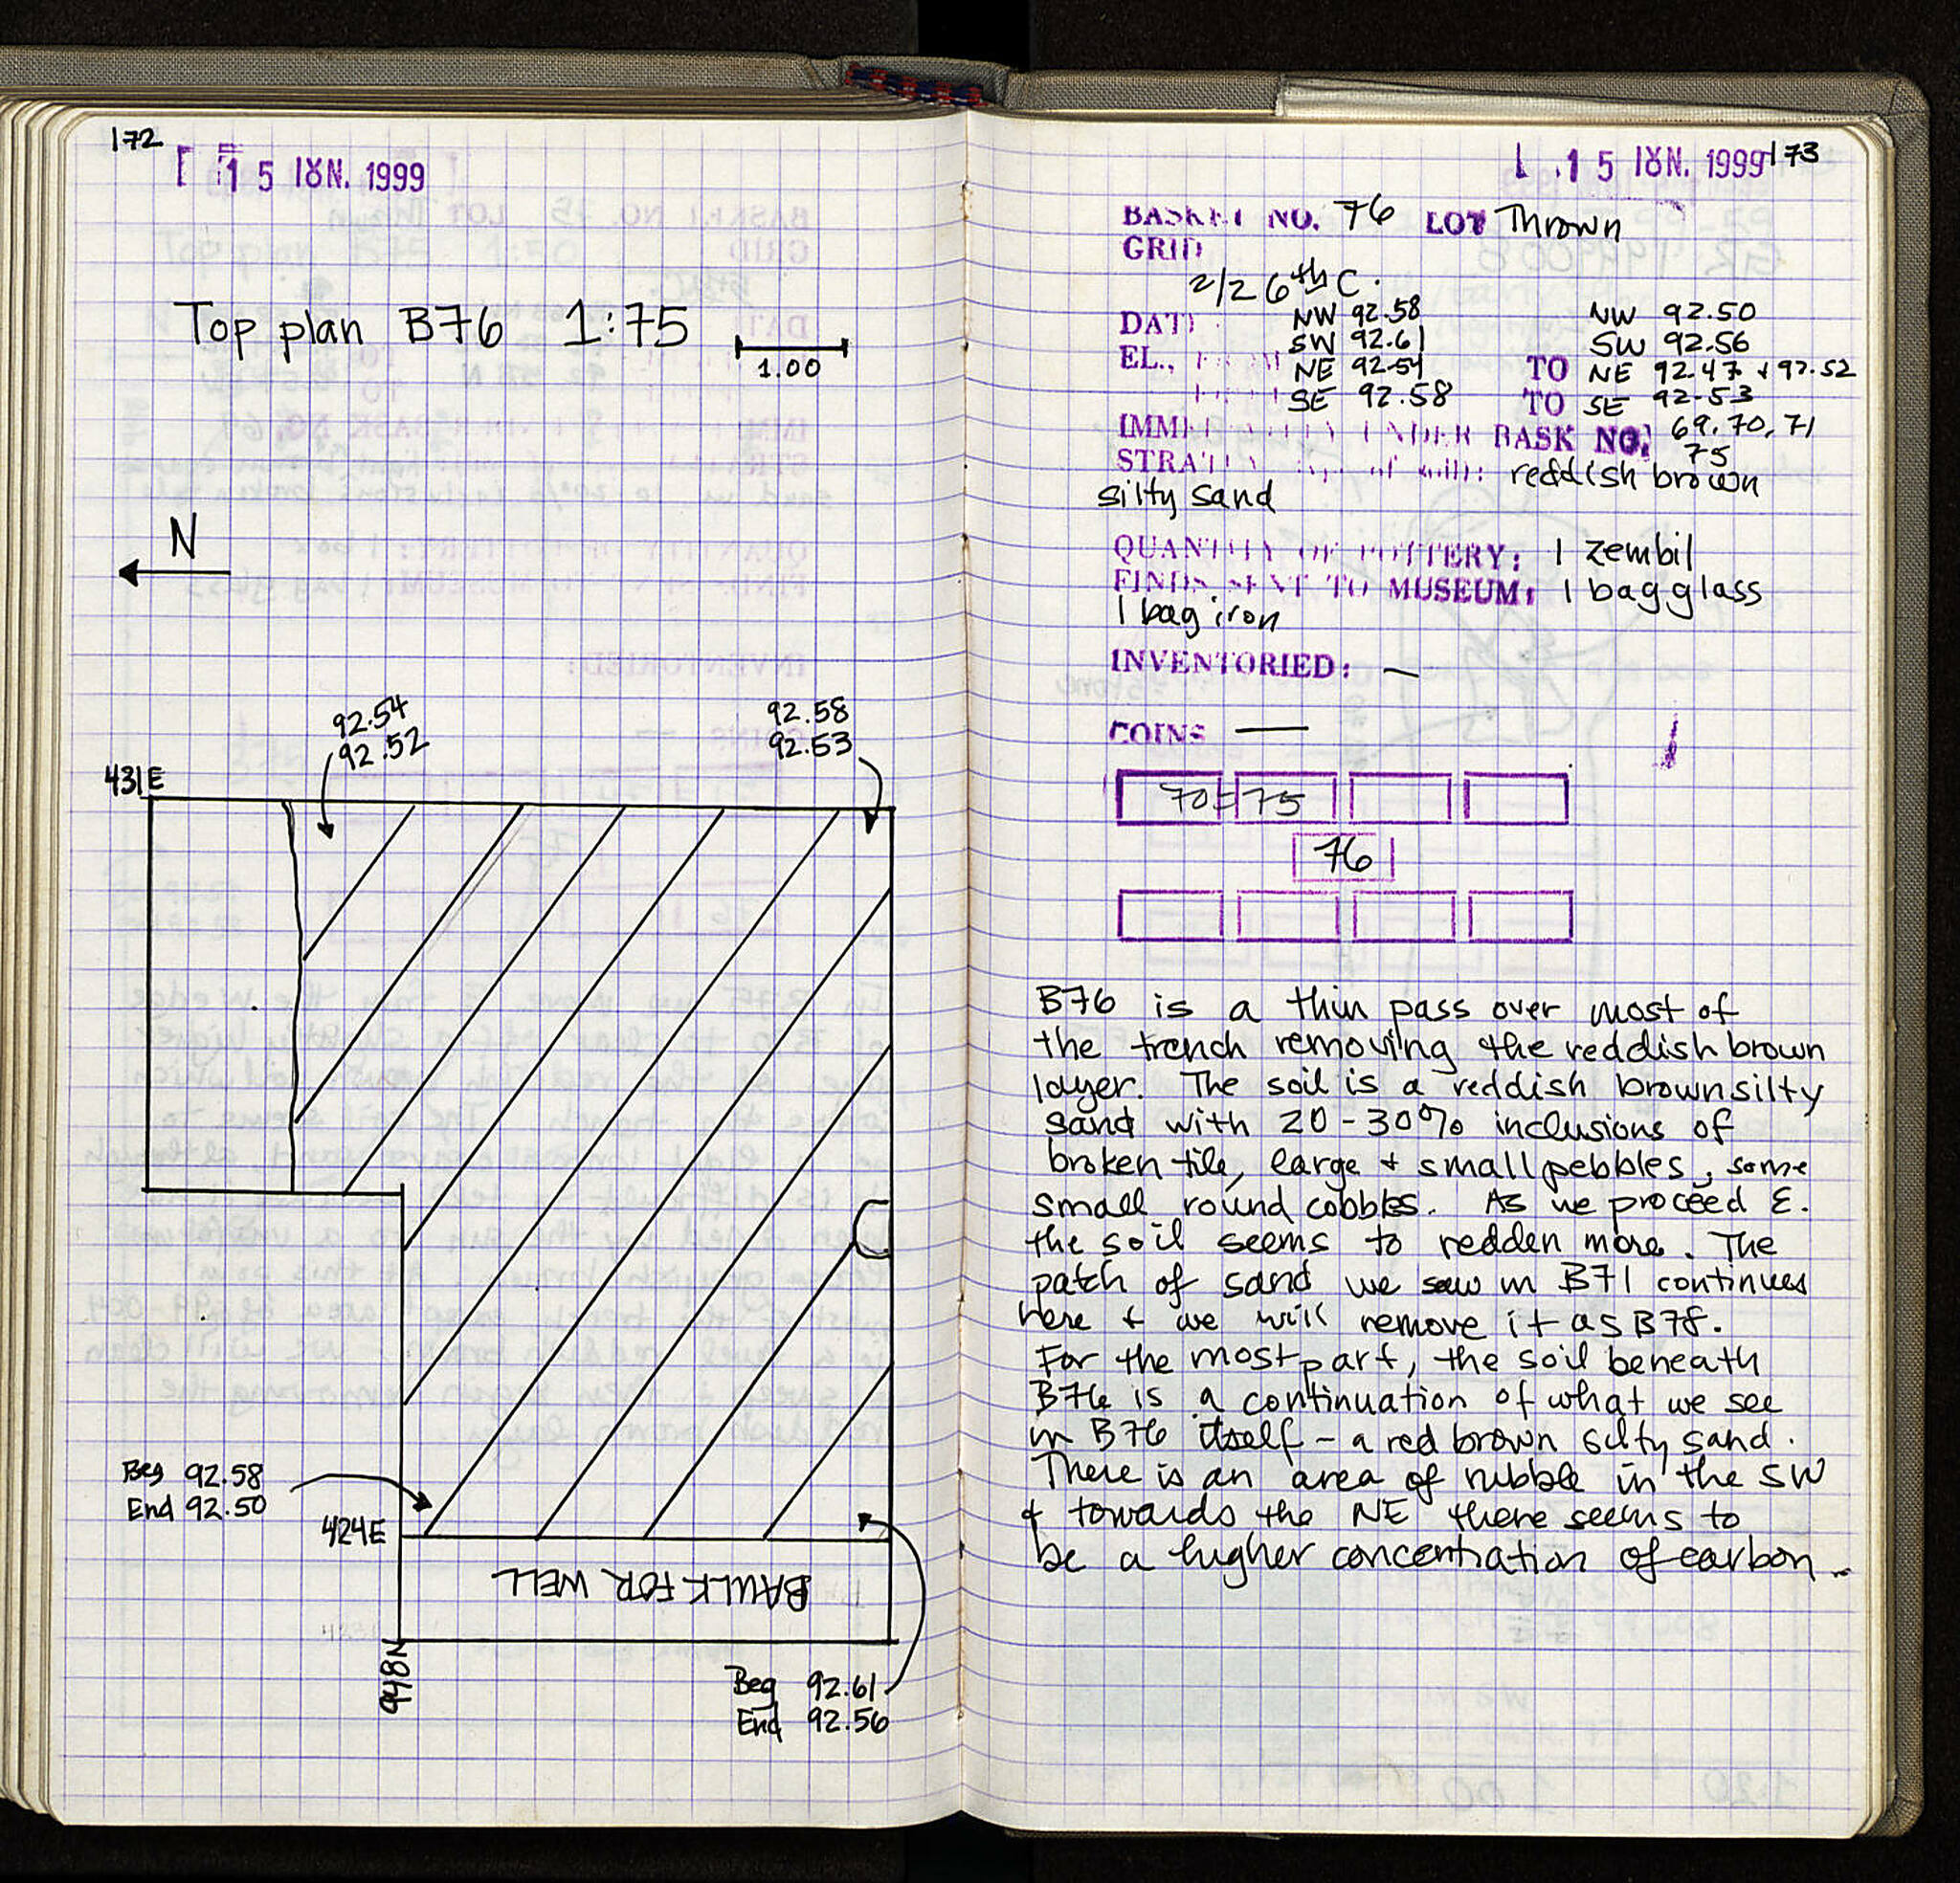 172
15 ΙΟΥΝ. 1999
Top plan B76 1:75
1.00
N
92.54
92.52
92.58
92.53
431E
Beg 92.58
End 92.50
424E
BAULK FOR WELL
948N
Beg 92.61
End 92.56
15 ΙΟΥΝ. 1999
173
BASKET NO. 76 LOT Thrown
GRID
2/2 6th C.
DATE
NW 92.58 NW 92.50
SW 92.61 SW 92.56
EL., FROM NE 92.54 TO NE 92.47 + 92.52
SE 92.58 TO SE 92.53
IMMEDIATELY UNDER BASK NO. 69, 70, 71
75
STRATUM (type of soil): reddish brown
silty sand
QUANTITY OF POTTERY: 1 zembil
FINDS SENT TO MUSEUM: 1 bag glass
1 bag iron
INVENTORIED: —
COINS —
70=75
76
B76 is a thin pass over most of
the trench removing the reddish brown
layer. The soil is a reddish brown silty
sand with 20-30% inclusions of
broken tile, large + small pebbles, some
small round cobbles. As we proceed E.
the soil seems to redden more. The
patch of sand we saw in B71 continues
here + we will remove it as B78.
For the most part, the soil beneath
B76 is a continuation of what we see
in B76 itself - a red brown silty sand.
There is an area of rubble in the SW
+ towards the NE there seems to
be a higher concentration of carbon.